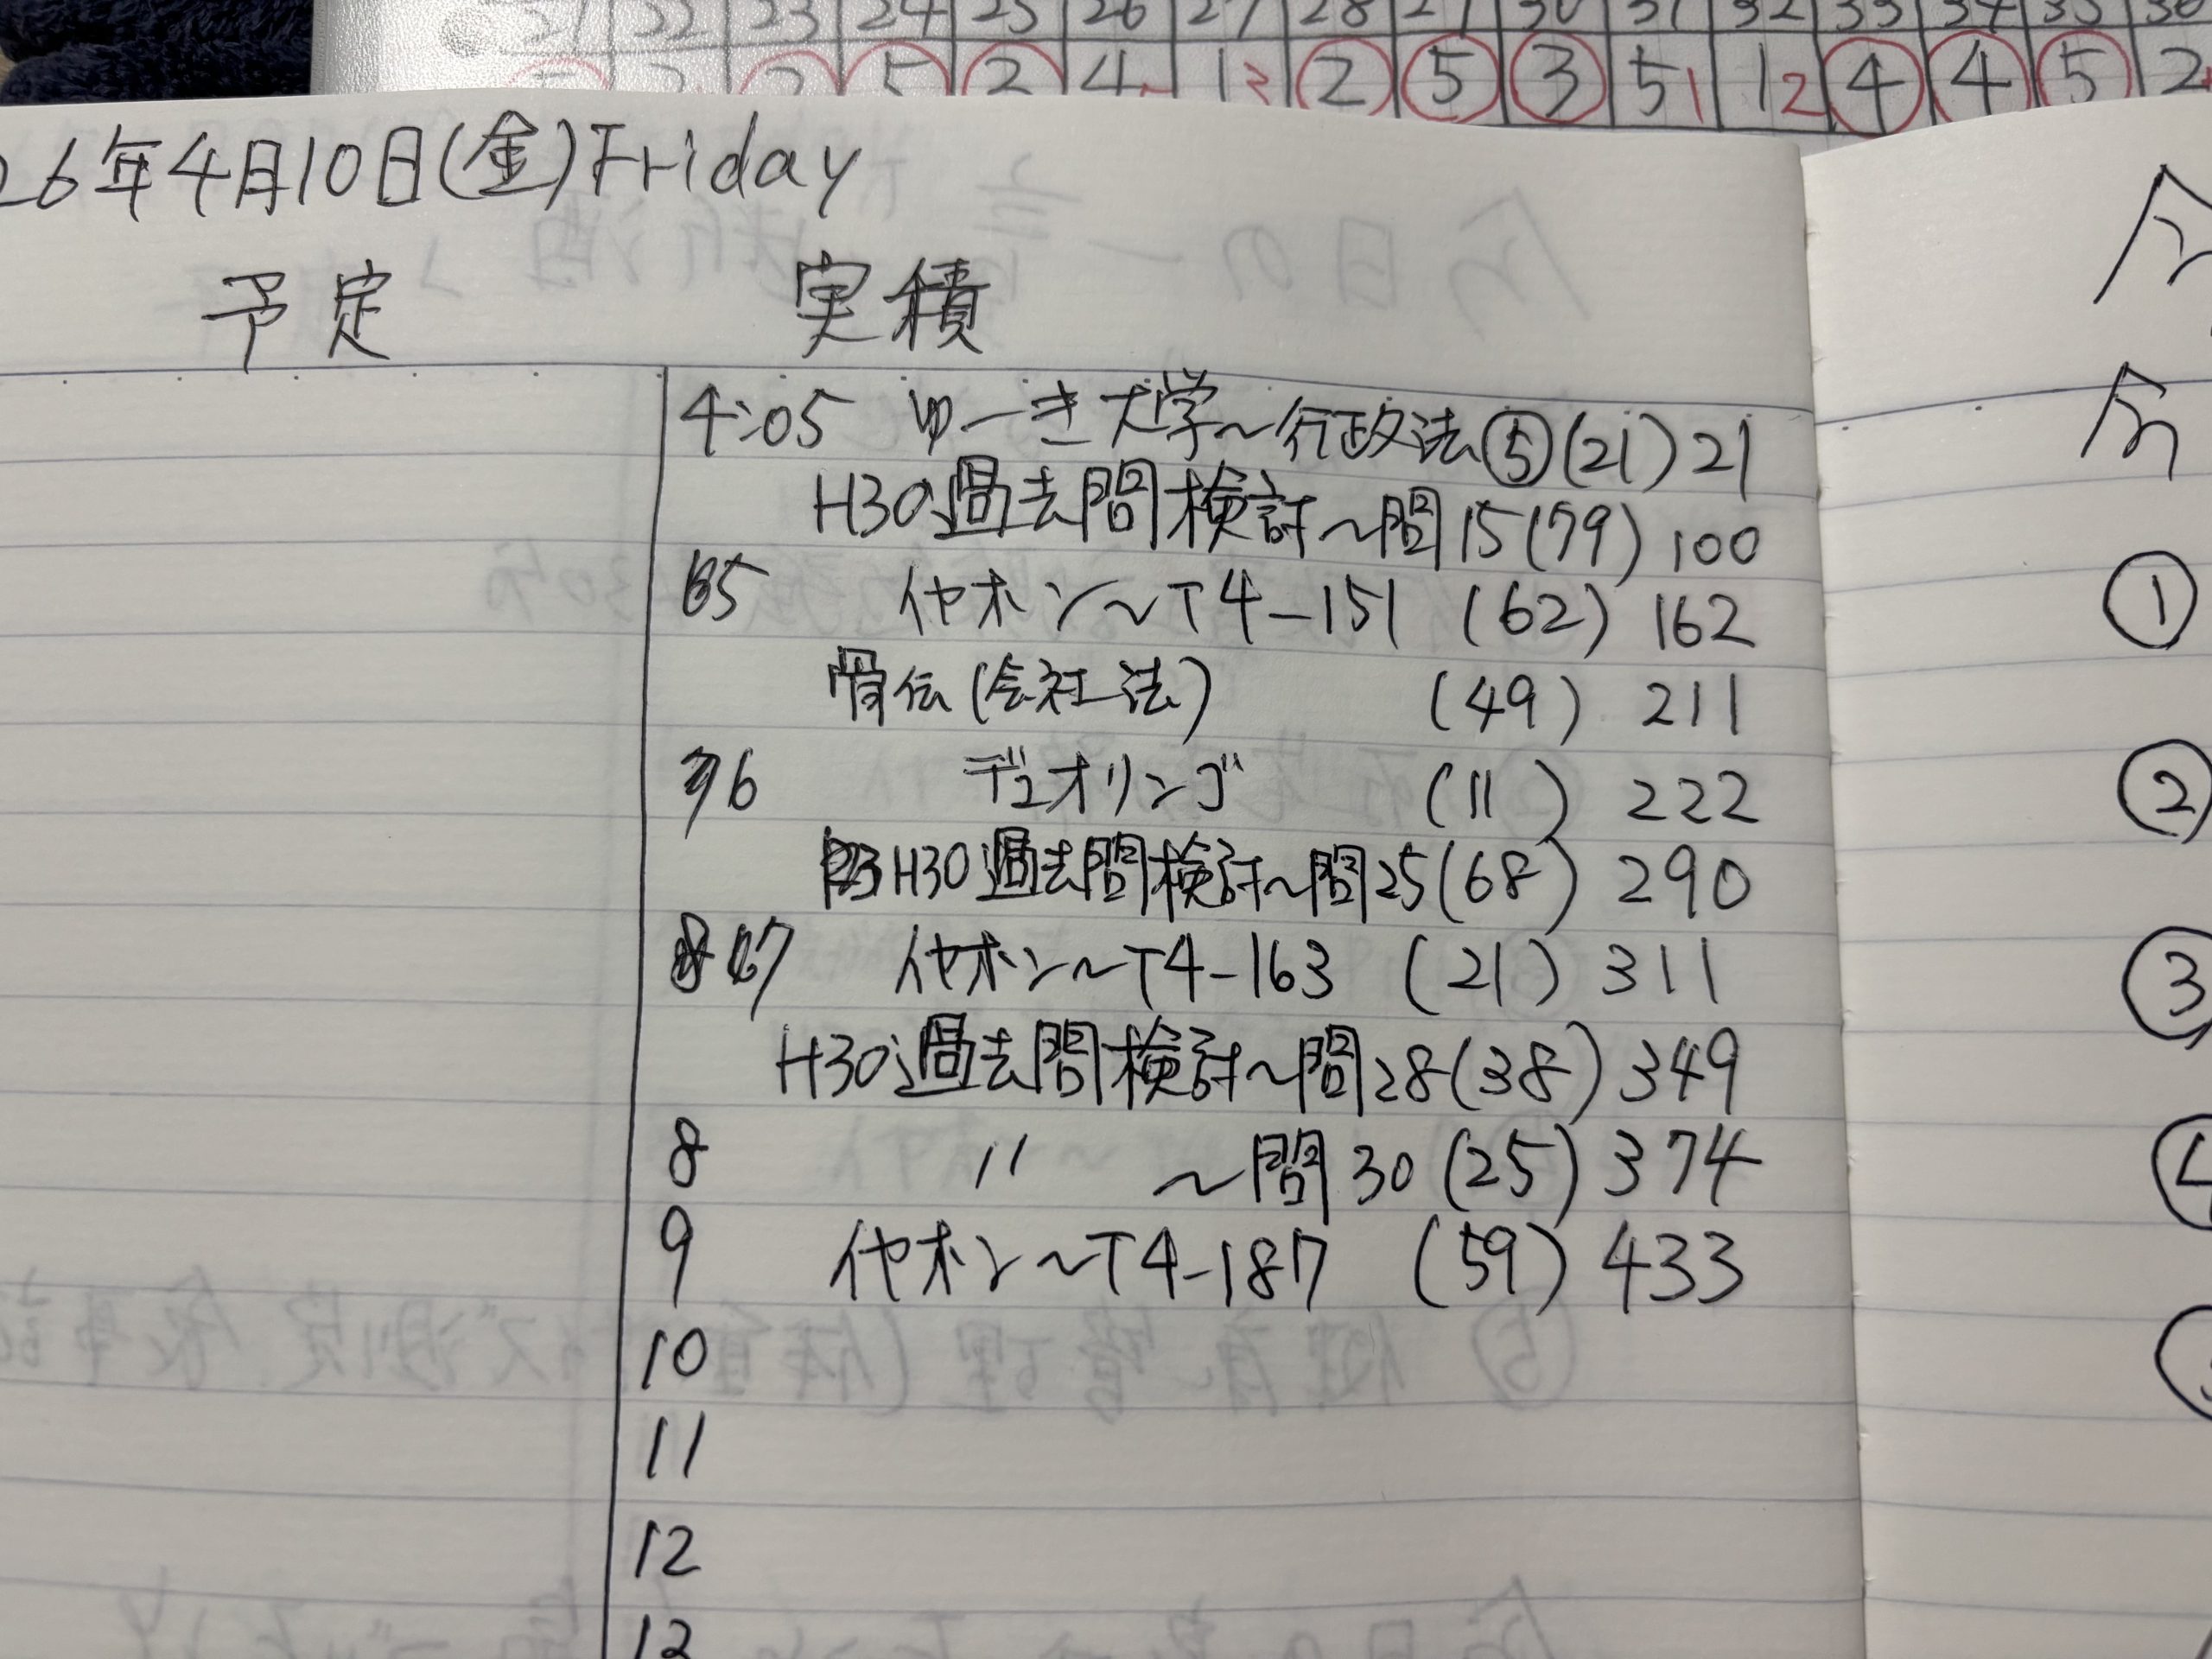 21 22 23 24 25 26 27 28 29 30 31 32 33 34 35 36
2 5 2 4 1 2 5 3 5 1 1 2 4 4 5 2
26年4月10日(金)Friday
予定 実積
4:05 ゆーき大学～行政法⑤(21)21
H30過去問検討～問15(79)100
5 イヤホン～T4-151 (62) 162
骨伝(会社法) (49) 211
6 デュオリンゴ (11) 222
H30過去問検討～問25(68) 290
7 イヤホン～T4-163 (21) 311
H30過去問検討～問28(38)349
8 〃 ～問30(25)374
9 イヤホン～T4-187 (59)433
10
11
12
①
②
③